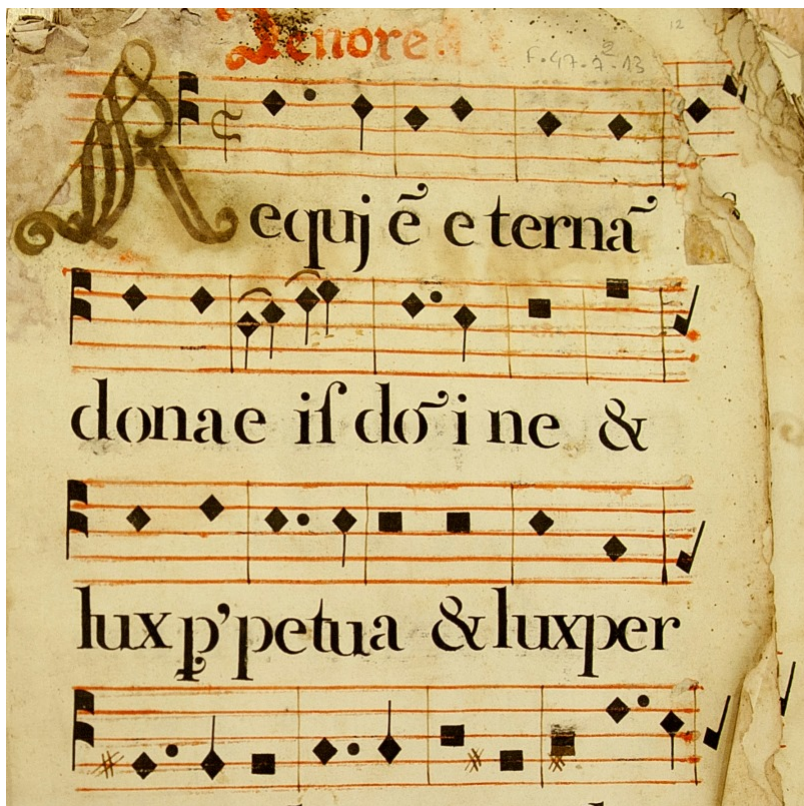 Tenore
12
F. 47. 2. 13
Requj ē e ternā
donae iſ dō i ne &
lux p' petua & lux per